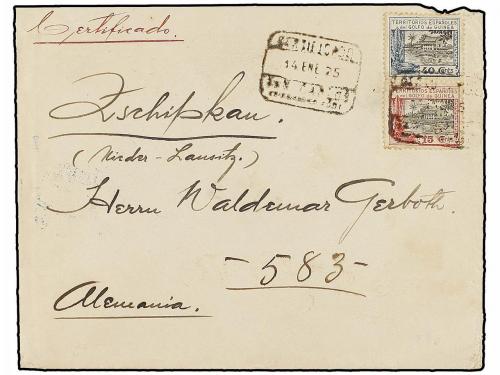 Certificado.
TERRITORIOS ESPAÑOLES
del GOLFO DE GUINEA
40 Cts
14 ENE 25
TERRITORIOS ESPAÑOLES
del GOLFO DE GUINEA
15 Cts
Zschipkau.
(Nieder-Lausitz.)
Herrn Waldemar Gerboth.
-583-
Alemania.